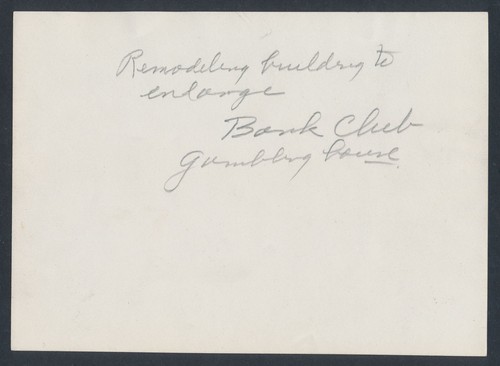 Remodeling building to
enlarge
Bank Club
Gambling house